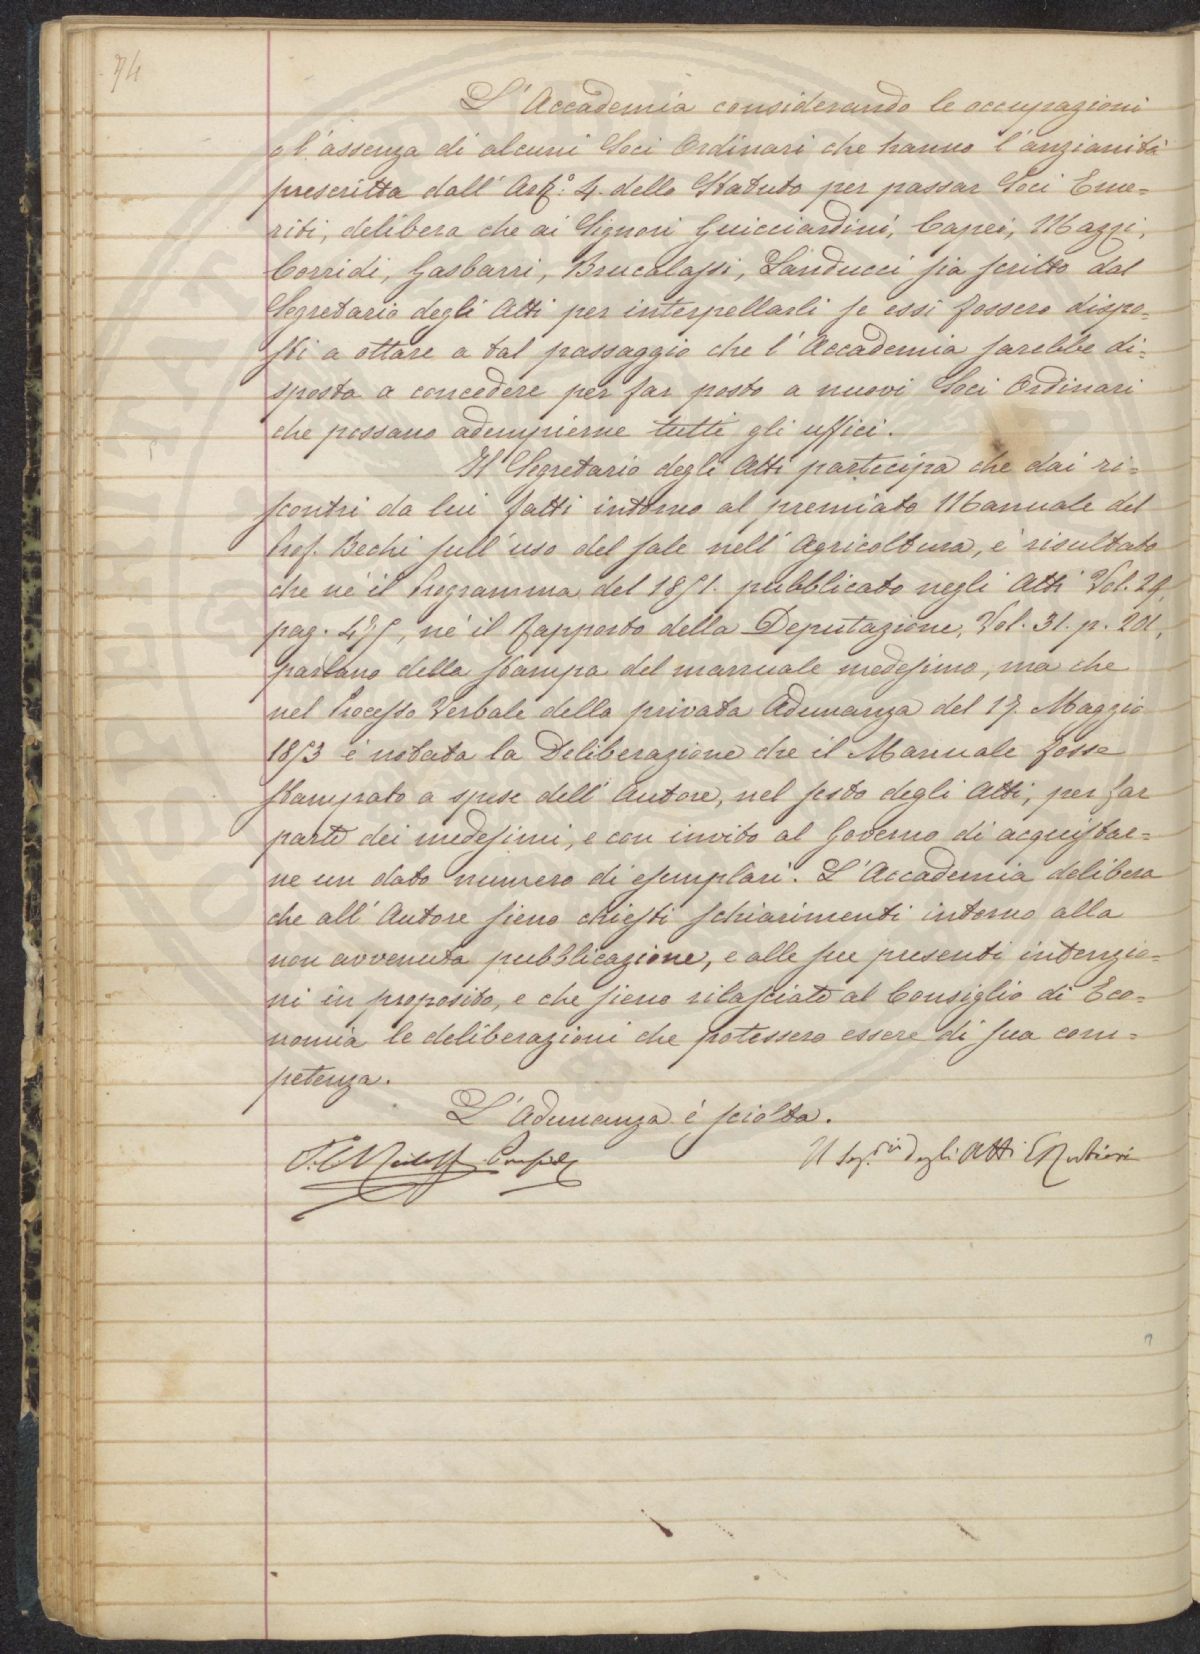 74
L'Accademia considerando le occupazioni
o l'assenza di alcuni Soci Ordinari che hanno l'anzianità
prescritta dall'Art.º 4. dello Statuto per passar Soci Eme=
riti, delibera che ai Signori Guicciardini, Capei, Mazzi,
Corridi, Gasbarri, Brucalassi, Landucci sia scritto dal
Segretario degli Atti per interpellarli se essi fossero dispo=
sti a ottare a tal passaggio che l'Accademia sarebbe di=
sposta a concedere per far posto a nuovi Soci Ordinari
che possano adempierne tutti gli uffici.
Il Segretario degli Atti partecipa che dai ri=
scontri da lui fatti intorno al premiato Manuale del
Prof. Bechi sull'uso del sale nell'Agricoltura, è risultato
che nè il Programma del 1851. pubblicato negli Atti Vol. 29,
pag. 475, nè il Rapporto della Deputazione, Vol. 31. p. 201,
parlano della stampa del manuale medesimo, ma che
nel Processo Verbale della privata Adunanza del 17. Maggio
1853 è notata la Deliberazione che il Manuale fosse
stampato a spese dell'Autore, nel sesto degli Atti, per far
parte dei medesimi, e con invito al Governo di acquistar=
ne un dato numero di esemplari. L'Accademia delibera
che all'Autore sieno chiesti schiarimenti intorno alla
non avvenuta pubblicazione, e alle sue presenti intenzio=
ni in proposito, e che sieno rilasciate al Consiglio di Eco=
nomia le deliberazioni che potessero essere di sua com=
petenza.
L'Adunanza è sciolta.
Il Seg.rio degli Atti